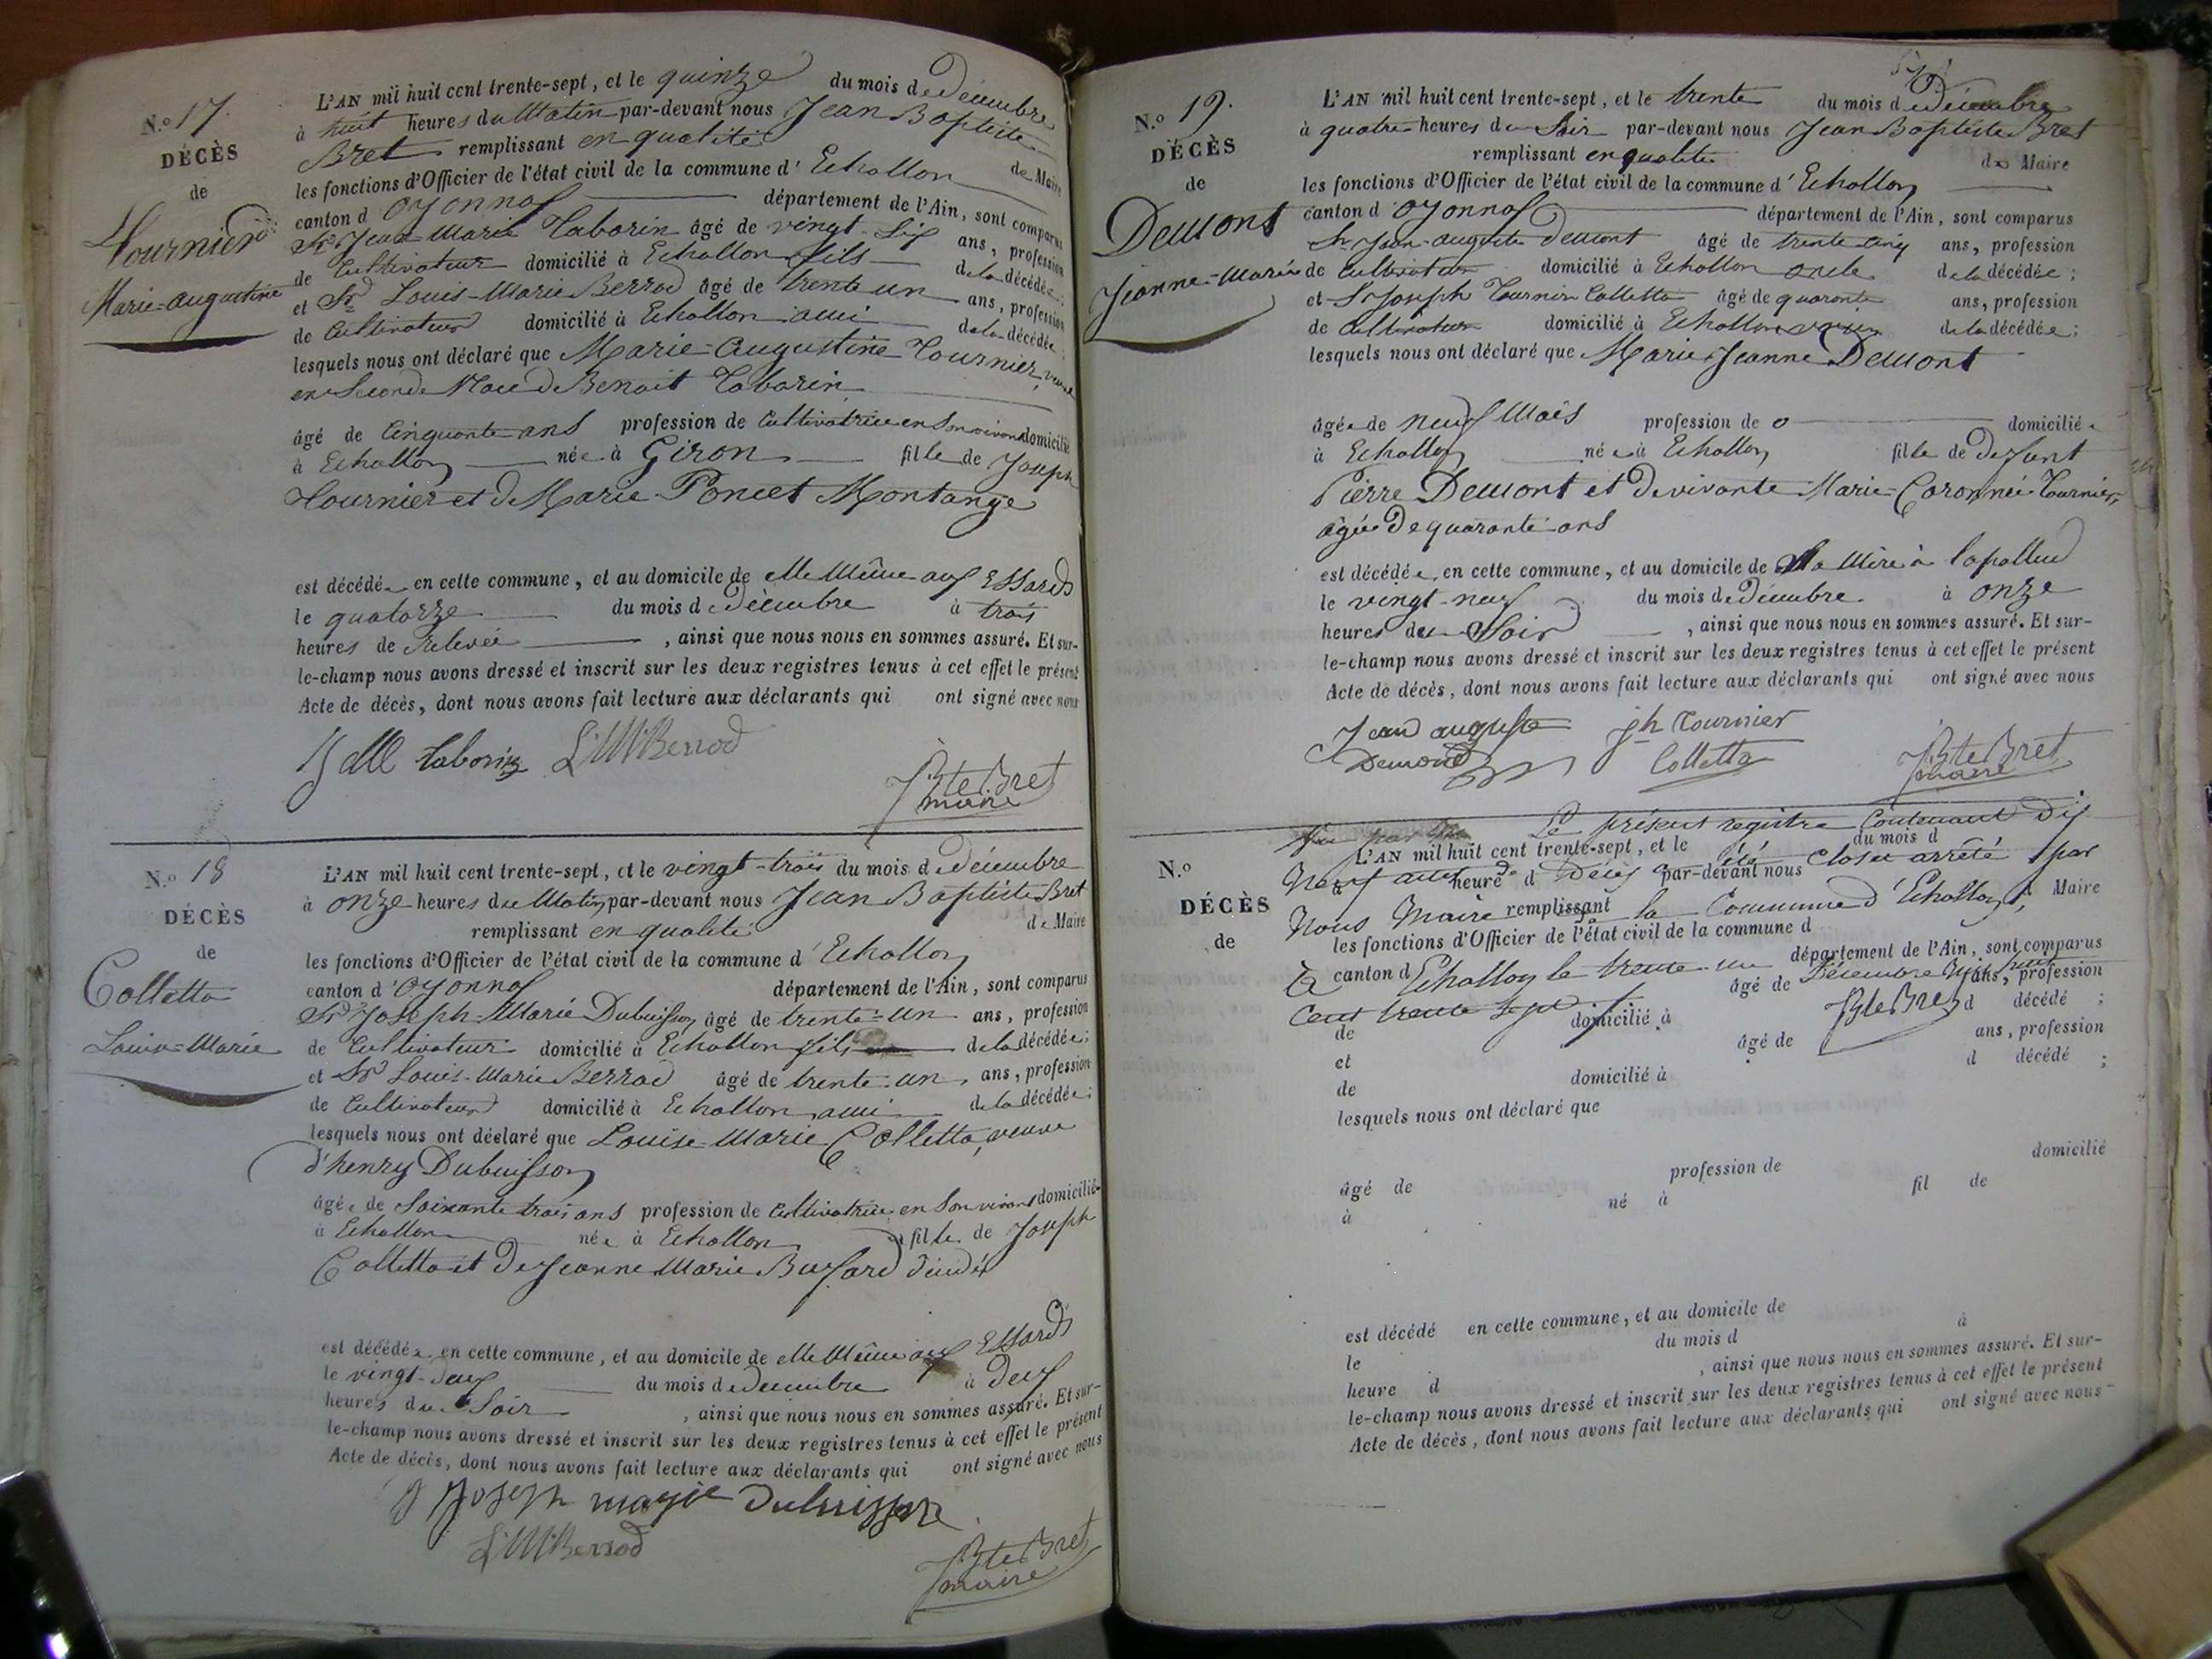 N.o 17.
DÉCÈS
de
Tournier
Marie-augustine
L'AN mil huit cent trente-sept, et le quinze du mois de Décembre
à huit heures du Matin par-devant nous Jean Baptiste
Bret remplissant en qualité de Maire
les fonctions d'Officier de l'état civil de la commune d'Echallon
canton d'Oyonnax département de l'Ain, sont comparus
Sr Jean Marie Taborin âgé de vingt-six ans, profession
de Cultivateur domicilié à Echallon fils de la décédée;
et Sr Louis-Marie Berrod âgé de trente un ans, profession
de Cultivateur domicilié à Echallon ami de la décédée;
lesquels nous ont déclaré que Marie-Augustine Tournier, veuve
en Seconde Noce de Benoit Taborin
âgé de Cinquante ans profession de Cultivatrice en Son vivant domicilié
à Echallon née à Giron fille de Joseph
Tournier et de Marie Poncet Montange
est décédée en cette commune, et au domicile de elle Même aux Essards
le quatorze du mois de Décembre à trois
heures de Relevée, ainsi que nous nous en sommes assuré. Et sur-
le-champ nous avons dressé et inscrit sur les deux registres tenus à cet effet le présent
Acte de décès, dont nous avons fait lecture aux déclarants qui ont signé avec nous
J M taborin L. M. Berrod
JBte Bret
maire
N.o 18
DÉCÈS
de
Colletta
Louise-Marie
L'AN mil huit cent trente-sept, et le vingt-trois du mois de Décembre
à onze heures du Matin, par-devant nous Jean Baptiste Bret
remplissant en qualité de Maire
les fonctions d'Officier de l'état civil de la commune d'Echallon
canton d'Oyonnax département de l'Ain, sont comparus
Sr Joseph-Marie Dubuisson âgé de trente-un ans, profession
de Cultivateur domicilié à Echallon fils de la décédée;
et Sr Louis-Marie Berrod âgé de trente-un ans, profession
de Cultivateur domicilié à Echallon ami de la décédée;
lesquels nous ont déclaré que Louise-Marie Colletta, veuve
d'henry Dubuisson
âgée de Soixante trois ans profession de Cultivatrice en Son vivant domiciliée
à Echallon née à Echallon fille de Joseph
Colletta et de Jeanne Marie Bussard
est décédée en cette commune, et au domicile de elle Même aux Essards
le vingt-deux du mois de Décembre à deux
heures du Soir, ainsi que nous nous en sommes assuré. Et sur-
le-champ nous avons dressé et inscrit sur les deux registres tenus à cet effet le présent
Acte de décès, dont nous avons fait lecture aux déclarants qui ont signé avec nous
Joseph marie Dubuisson
L. M. Berrod
JBte Bret
maire
N.o 19.
DÉCÈS
de
Demont
Jeanne-Marie
L'AN mil huit cent trente-sept, et le trente du mois de Décembre
à quatre heures du Soir par-devant nous Jean Baptiste Bret
remplissant en qualité de Maire
les fonctions d'Officier de l'état civil de la commune d'Echallon
canton d'Oyonnax département de l'Ain, sont comparus
Sr Jean-auguste Demont âgé de trente-cinq ans, profession
de Cultivateur domicilié à Echallon oncle de la décédée;
et Sr Joseph Tournier Colletta âgé de quarante ans, profession
de Cultivateur domicilié à Echallon voisin de la décédée;
lesquels nous ont déclaré que Marie Jeanne Demont
âgée de neuf Mois profession de o domiciliée
à Echallon née à Echallon fille de Defunt
Pierre Demont et de vivante Marie-Coronnée Tournier,
agée de quarante ans
est décédée en cette commune, et au domicile de Sa Mère à lapallud
le vingt-neuf du mois de Décembre à onze
heures du Soir, ainsi que nous nous en sommes assuré. Et sur-
le-champ nous avons dressé et inscrit sur les deux registres tenus à cet effet le présent
Acte de décès, dont nous avons fait lecture aux déclarants qui ont signé avec nous
Jean auguste jh Tournier
Demond Colletta
JBte Bret
maire
Le présent registre Contenant Dix
Neuf actes de Décès été Clos et arrêté par
Nous Maire de la Commune d'Echallon,
à Echallon le trente-un Décembre Mil huit
Cent trente Sept JBte Bret
N.o
DÉCÈS
de
L'AN mil huit cent trente-sept, et le du mois d
à heure d par-devant nous
remplissant Maire
les fonctions d'Officier de l'état civil de la commune d
canton d département de l'Ain, sont comparus
âgé de ans, profession
de domicilié à d décédé ;
et âgé de ans, profession
de domicilié à d décédé ;
lesquels nous ont déclaré que
âgé de profession de domicilié
à né à fil de
est décédé en cette commune, et au domicile de
le du mois d à
heure d , ainsi que nous nous en sommes assuré. Et sur-
le-champ nous avons dressé et inscrit sur les deux registres tenus à cet effet le présent
Acte de décès, dont nous avons fait lecture aux déclarants qui ont signé avec nous